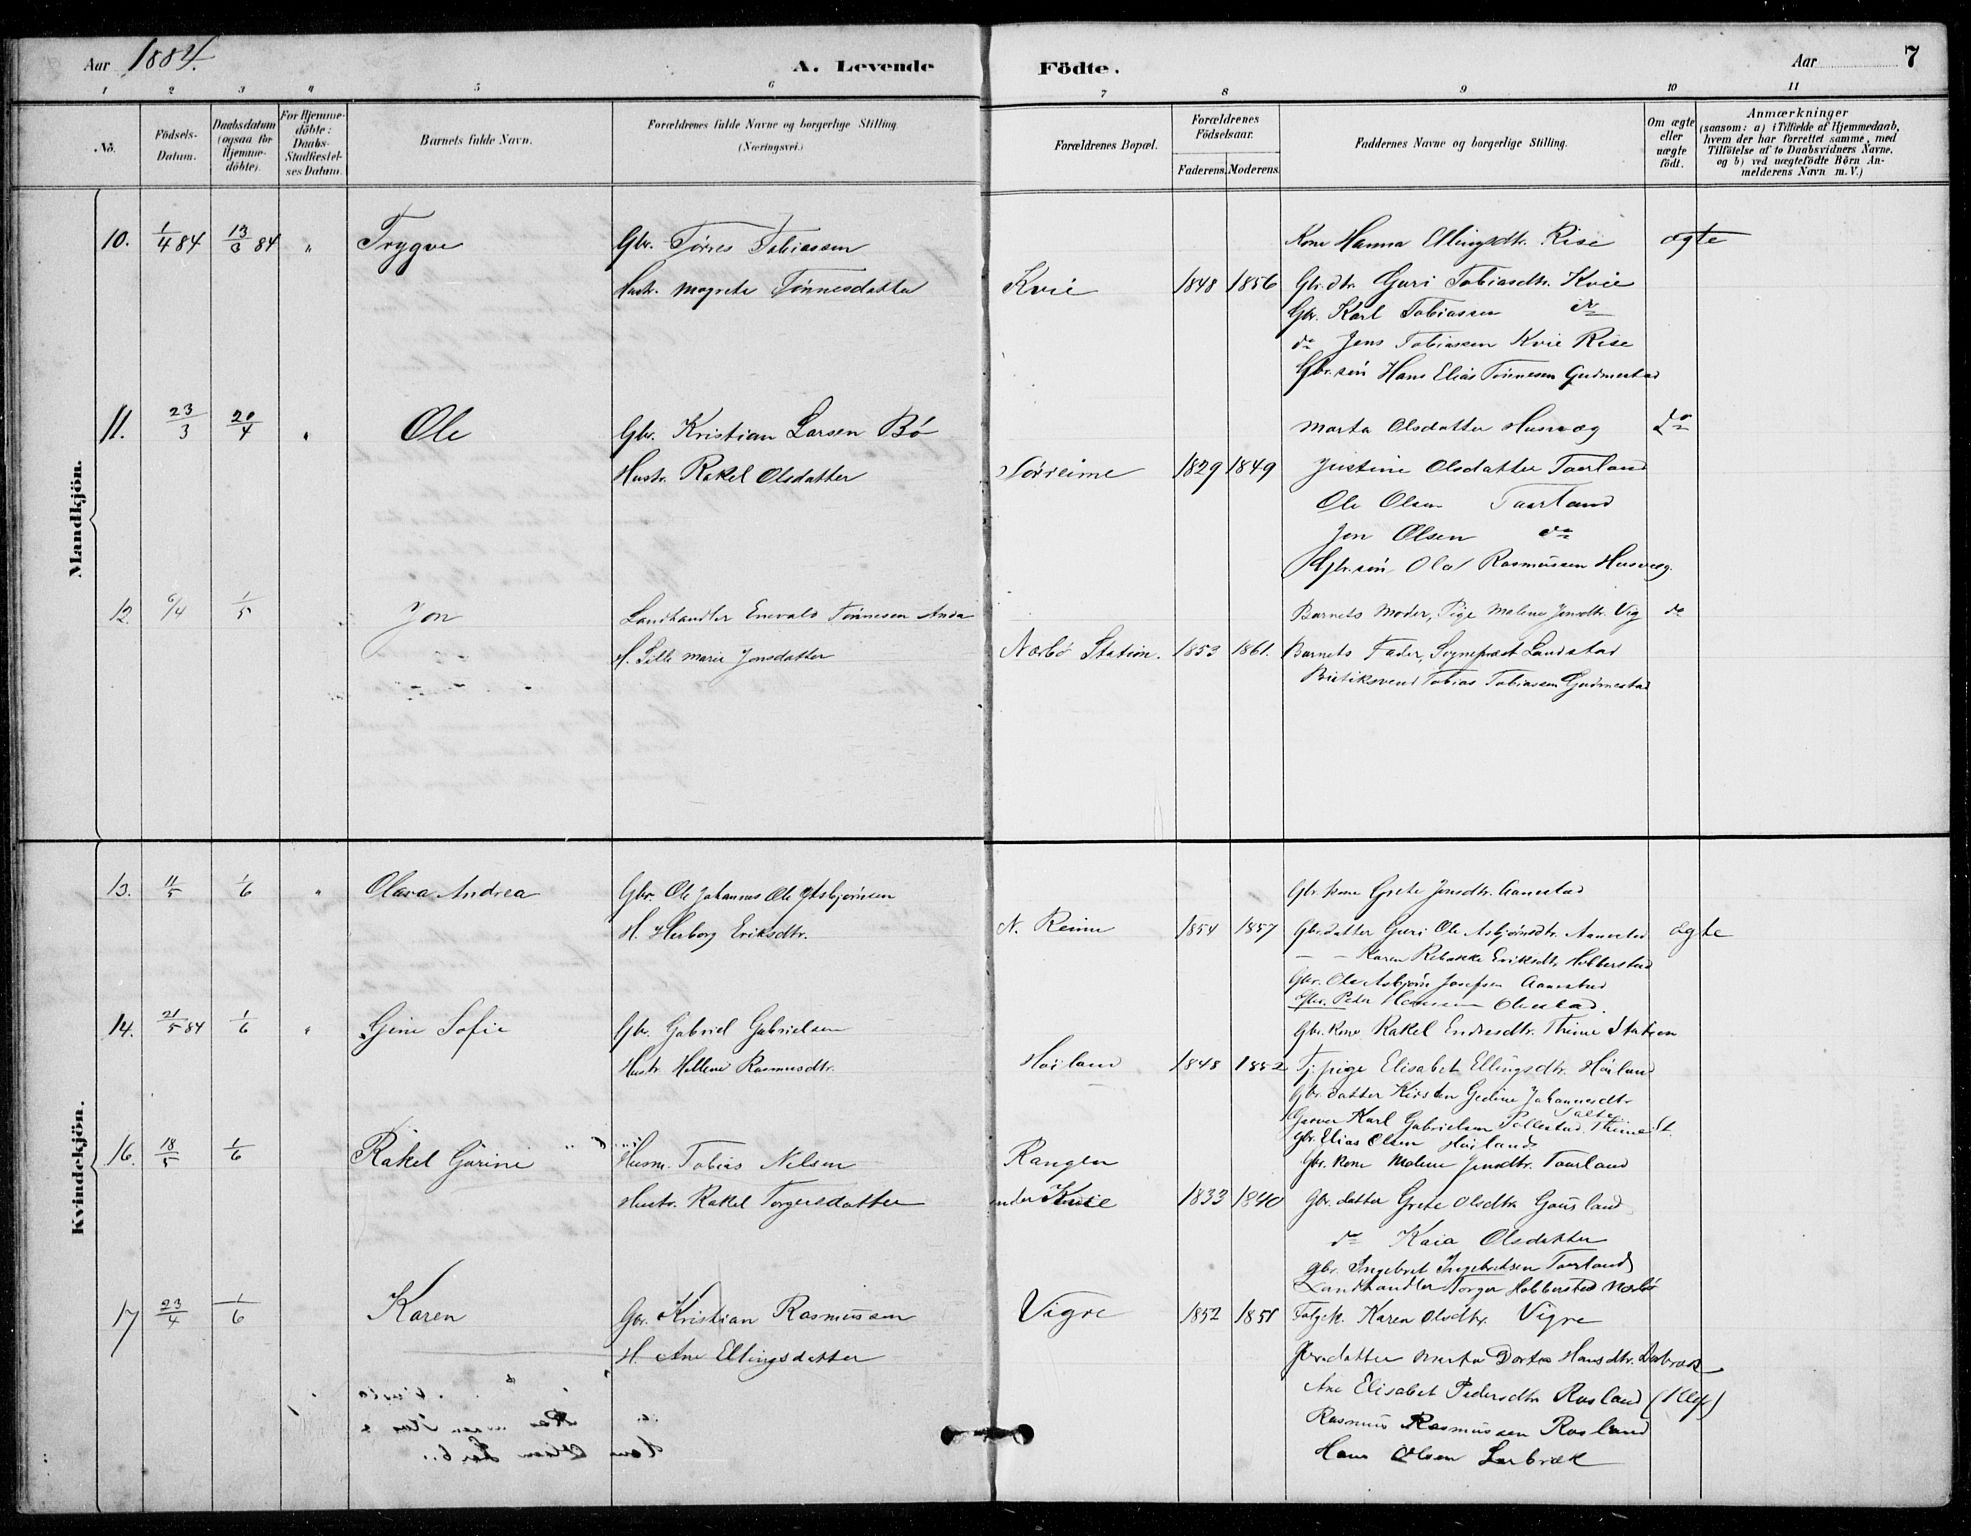 Aar 1884.
A. Levende Födte.
Aar 7
1 2 3 4 5 6 7 8 9 10 11
No.
Födsels-Datum.
Daabsdatum (ogsaa for Hjemmedöbte).
For Hjemmedöbte: Daabs-Stadfæstelses Datum.
Barnets fulde Navn.
Forældrenes fulde Navne og borgerlige Stilling (Næringsvei.)
Forældrenes Bopæl.
Forældrenes Födselsaar.
Faderens. Moderens.
Faddernes Navne og borgerlige Stilling.
Om ægte eller uægte födt.
Anmærkninger
(saasom: a) i Tilfælde af Hjemmedaab, hvem der har forrettet samme, med Tilföielse af to Daabsvidners Navne, og b) ved uægtefödte Börn Anmelderens Navn m. V.)
Mandkjön.
10. 1/4 84 13/ 84 " Trygve Gbr. Tørres Tobiassen Kone Hanna Ellingsdtr. Rise ægte
Hustr. Magrete Tönnesdatter Kvie 1848 1856 Gbr.dtr. Guri Tobiasdtr. Kvie
Gbr. Karl Tobiassen do
do Jens Tobiassen Kvie Rise
Gbr.sön Hans Elias Tönnesen Gudmestad
11. 23/3 20/4 " Ole Gbr. Kristian Larsen Bö Marta Olsdatter Husvæg do
Hustr. Rakel Olsdatter Nörreime 1829 1849 Justine Olsdatter Taarland
Ole Olsen Taarland
Jon Olsen do
Gbr.sön Ola Rasmussen Husvæg.
12. 6/4 1/5 Jon Landhandler Enevald Tönnesen Anda Barnets Moder, Pige Malene Jonsdtr. Vig do
H. Sille Marie Jonsdatter Nærbö Station. 1853 1861. Barnets Fader, Sogneprest Landstad
Butiksvend Tobias Tobiassen Gudmestad
Kvindekjön.
13. 11/5 1/6 " Olava Andrea Gbr. Ole Johannes Ole Asbjörnsen Gbr. kone Grete Jonsdtr. Aanestad
H. Herborg Eriksdtr. N. Reime 1854 1857 Gbr.datter Guri Ole Asbjörnsdtr. Aanestad ægte
— - Karen Rebekke Eriksdtr. Hobberstad
Gbr. Ole Asbjörn Josefsen Aanestad
Gbr. Peder Hansen Obrestad.
14. 21/5 84 1/6 " Gine Sofie Gbr. Gabriel Gabrielsen Gbr. kone Rakel Endresdtr. Thime Station
Hustr. Hellene Rasmusdtr. Höiland 1848 1852 Tj. pige Elisabet Ellingsdtr. Höiland
Gbr. datter Kirsten Gedine Johannesdtr. Salte
Garver Karl Gabrielsen Pollestad. Thime St.
Gbr. Elias Olsen Höiland
16. 18/5 1/6 Rakel Gurine Husm. Tobias Nilsen Rangen Gbr. kone Malene Jensdtr. Taarland
Hustr. Rakel Torgersdatter under Kvie 1833 1840 Gbr. datter Grete Olsdtr. Gausland
do Kaia Olsdatter
Gbr. Ingebret Ingebretsen Taarland
Landhandler Torger Hobberstad Nærbö
17 23/4 1/6 Karen Gbr. Kristian Rasmussen Vigre 1852 1851 Folgek. Karen Olsdtr. Vigre
H. Ane Ellingsdatter Gbr.datter Marta Dortea Hansdtr. Lerbræk
Ane Elisabet Pedersdtr. Rosland (Klep)
Rasmus Rasmussen Rosland
Hans Olsen Lerbræk